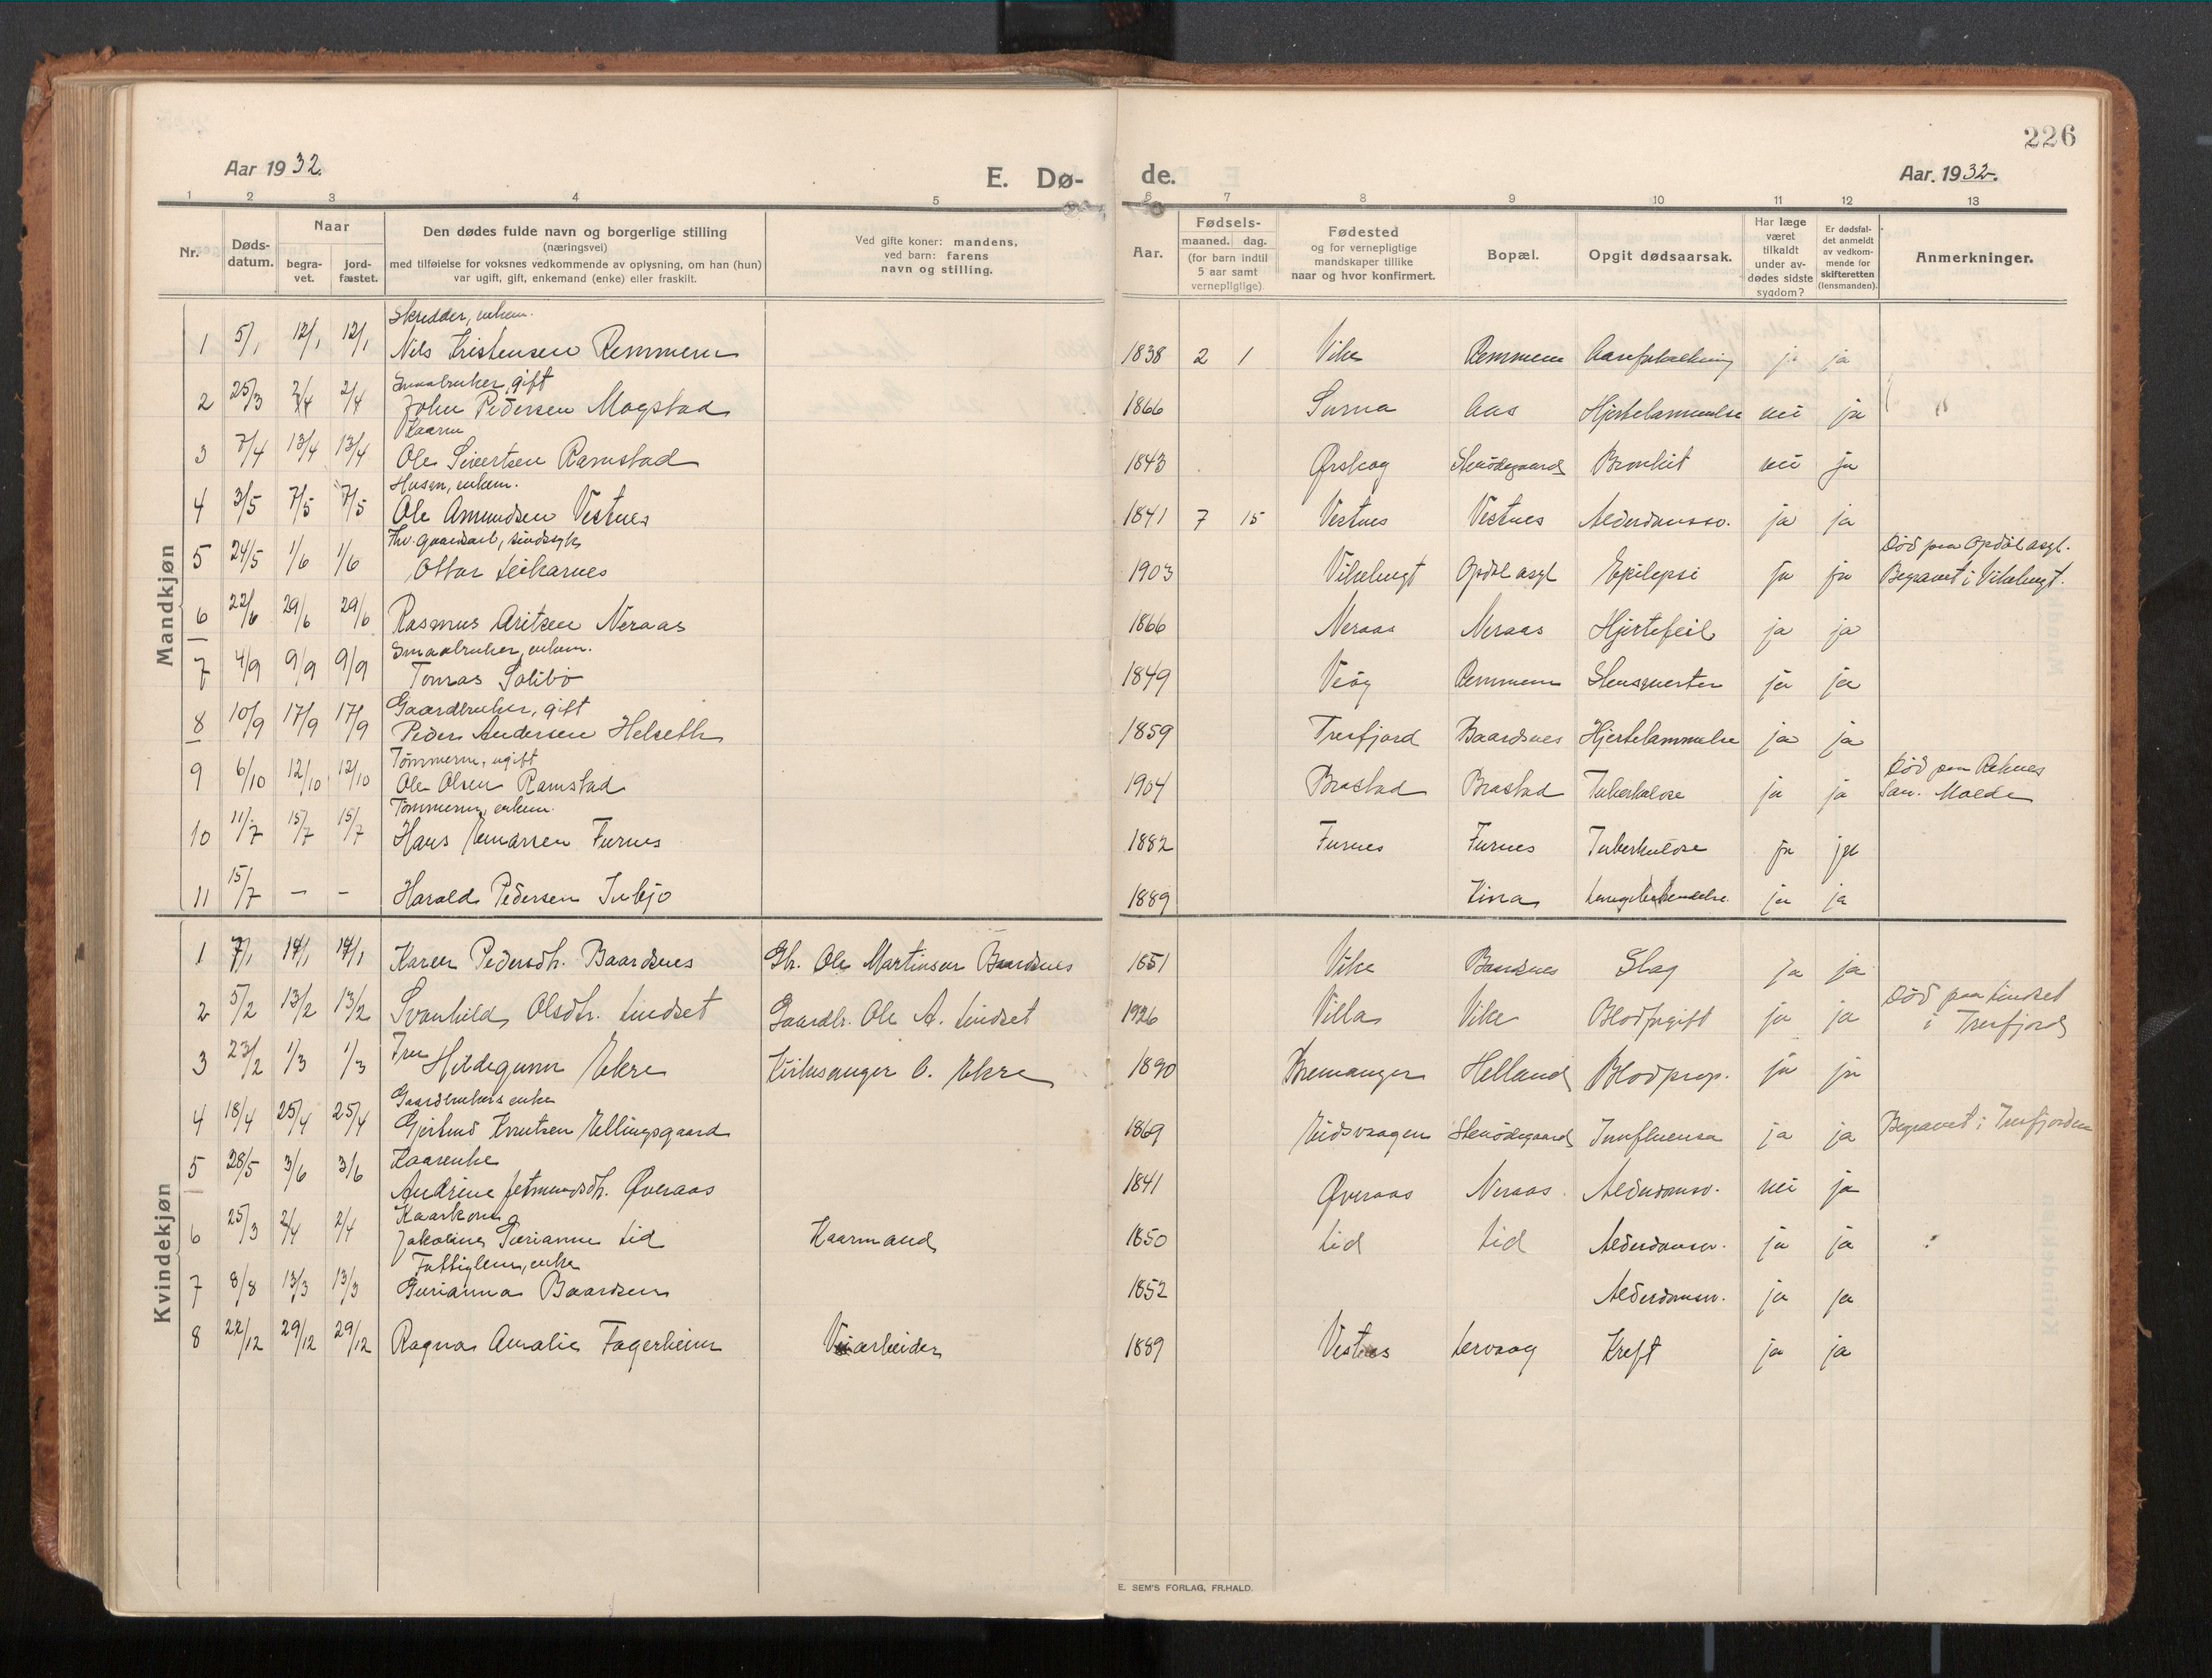 226
Aar 1932.
E. Dø- de.
Aar. 1932.
1 2 3 4 5 6 7 8 9 10 11 12 13
Nr. Døds-datum. Naar begra-vet. jord-fæstet. Den dødes fulde navn og borgerlige stilling (næringsvei) med tilføielse for voksnes vedkommende av oplysning, om han (hun) var ugift, gift, enkemand (enke) eller fraskilt. Ved gifte koner: mandens, ved barn: farens navn og stilling. Aar. Fødsels- maaned. dag. (for barn indtil 5 aar samt vernepligtige) Fødested og for vernepligtige mandskaper tillike naar og hvor konfirmert. Bopæl. Opgit dødsaarsak. Har læge været tilkaldt under av-dødes sidste sygdom? Er dødsfal-det anmeldt av vedkom-mende for skifteretten (lensmanden). Anmerkninger.
Mandkjøn
Skredder, enkem.
1 5/1 12/1 12/1 Nils Kristensen Remmem 1838 2 1 Vike Remmem Aareforkalkning ja ja
Smaabruker, gift
2 25/3 2/4 2/4 John Pedersen Mogstad 1866 Surna Aas Hjertelammelse nei ja
Kaarm
3 7/4 13/4 13/4 Ole Sivertsen Ramstad 1843 Ørskog Stenødegaard Bronkit nei ja
Husm, enkem.
4 3/5 7/5 7/5 Ole Amundsen Vestnes 1841 7 15 Vestnes Vestnes Alderdomssv. ja ja
Fhv. gaardarb, sindssyk Død paa Opdøl asyl.
5 24/5 1/6 1/6 Ottar Leikarnes 1903 Vikebugt Opdøl asyl Epilepsi ja ja Begravet i Vikebugt.
6 22/6 29/6 29/6 Rasmus Aritsen Neraas 1866 Neraas Neraas Hjertefeil ja ja
Smaabruker, enkem.
7 4/9 9/9 9/9 Tomas Solibø 1849 Veøy Remmem Stensmerter ja ja
Gaardbruker, gift
8 10/9 17/9 17/9 Peder Andersen Helseth 1859 Tresfjord Baardsnes Hjertelammelse ja ja
Tømmerm, ugift Død paa Reknes
9 6/10 12/10 12/10 Ole Olsen Ramstad 1904 Brastad Brastad Tuberkulose ja ja San. Molde
Tømmerm, enkem.
10 11/7 15/7 15/7 Hans Einarsen Furnes 1882 Furnes Furnes Tuberkulose ja ja
11 15/7 – – Harald Pedersen 1889 Kina Lungebetændelse. ja ja
Kvindekjøn
1 7/1 14/1 14/1 Karen Pedersdtr. Baardsnes Gbr. Ole Martinsen Baardsnes 1851 Vike Baardsnes Slag ja ja
Død paa Lindset
2 5/2 13/2 13/2 Svanhild Olsdtr. Lindset Gaardbr. Ole A. Lindset 1926 Villa Vike Blodforgift ja ja i Tresfjord
3 23/2 1/3 1/3 Fru Hildegunn Ekre Kirkesanger O. Ekre 1890 Bremanger Helland Blodprop. ja ja
Gaardbrukers enke
4 18/4 25/4 25/4 Gjertrud Knutsen Ellingsgaard 1869 Eidsvaagen Stenødegaard Innfluensa ja ja Begravet i Tresfjorden
Kaarenke
5 28/5 3/6 3/6 Andrine Jetmundsdtr. Øveraas 1841 Øveraas Neraas Alderdomsv. nei ja
Kaarkone
6 25/3 2/4 2/4 Jakobine Gurianne Lid Kaarmand 1850 Lid Lid Alderdomsv. ja ja
Fattiglem, enke
7 8/8 13/3 13/3 Gurianna Baardsen 1852 Alderdomsv. ja ja
8 22/12 29/12 29/12 Ragna Amalie Fagerheim Veiarbeider 1889 Vestnes Lervaag Kreft ja ja
E. SEM'S FORLAG, FR.HALD.